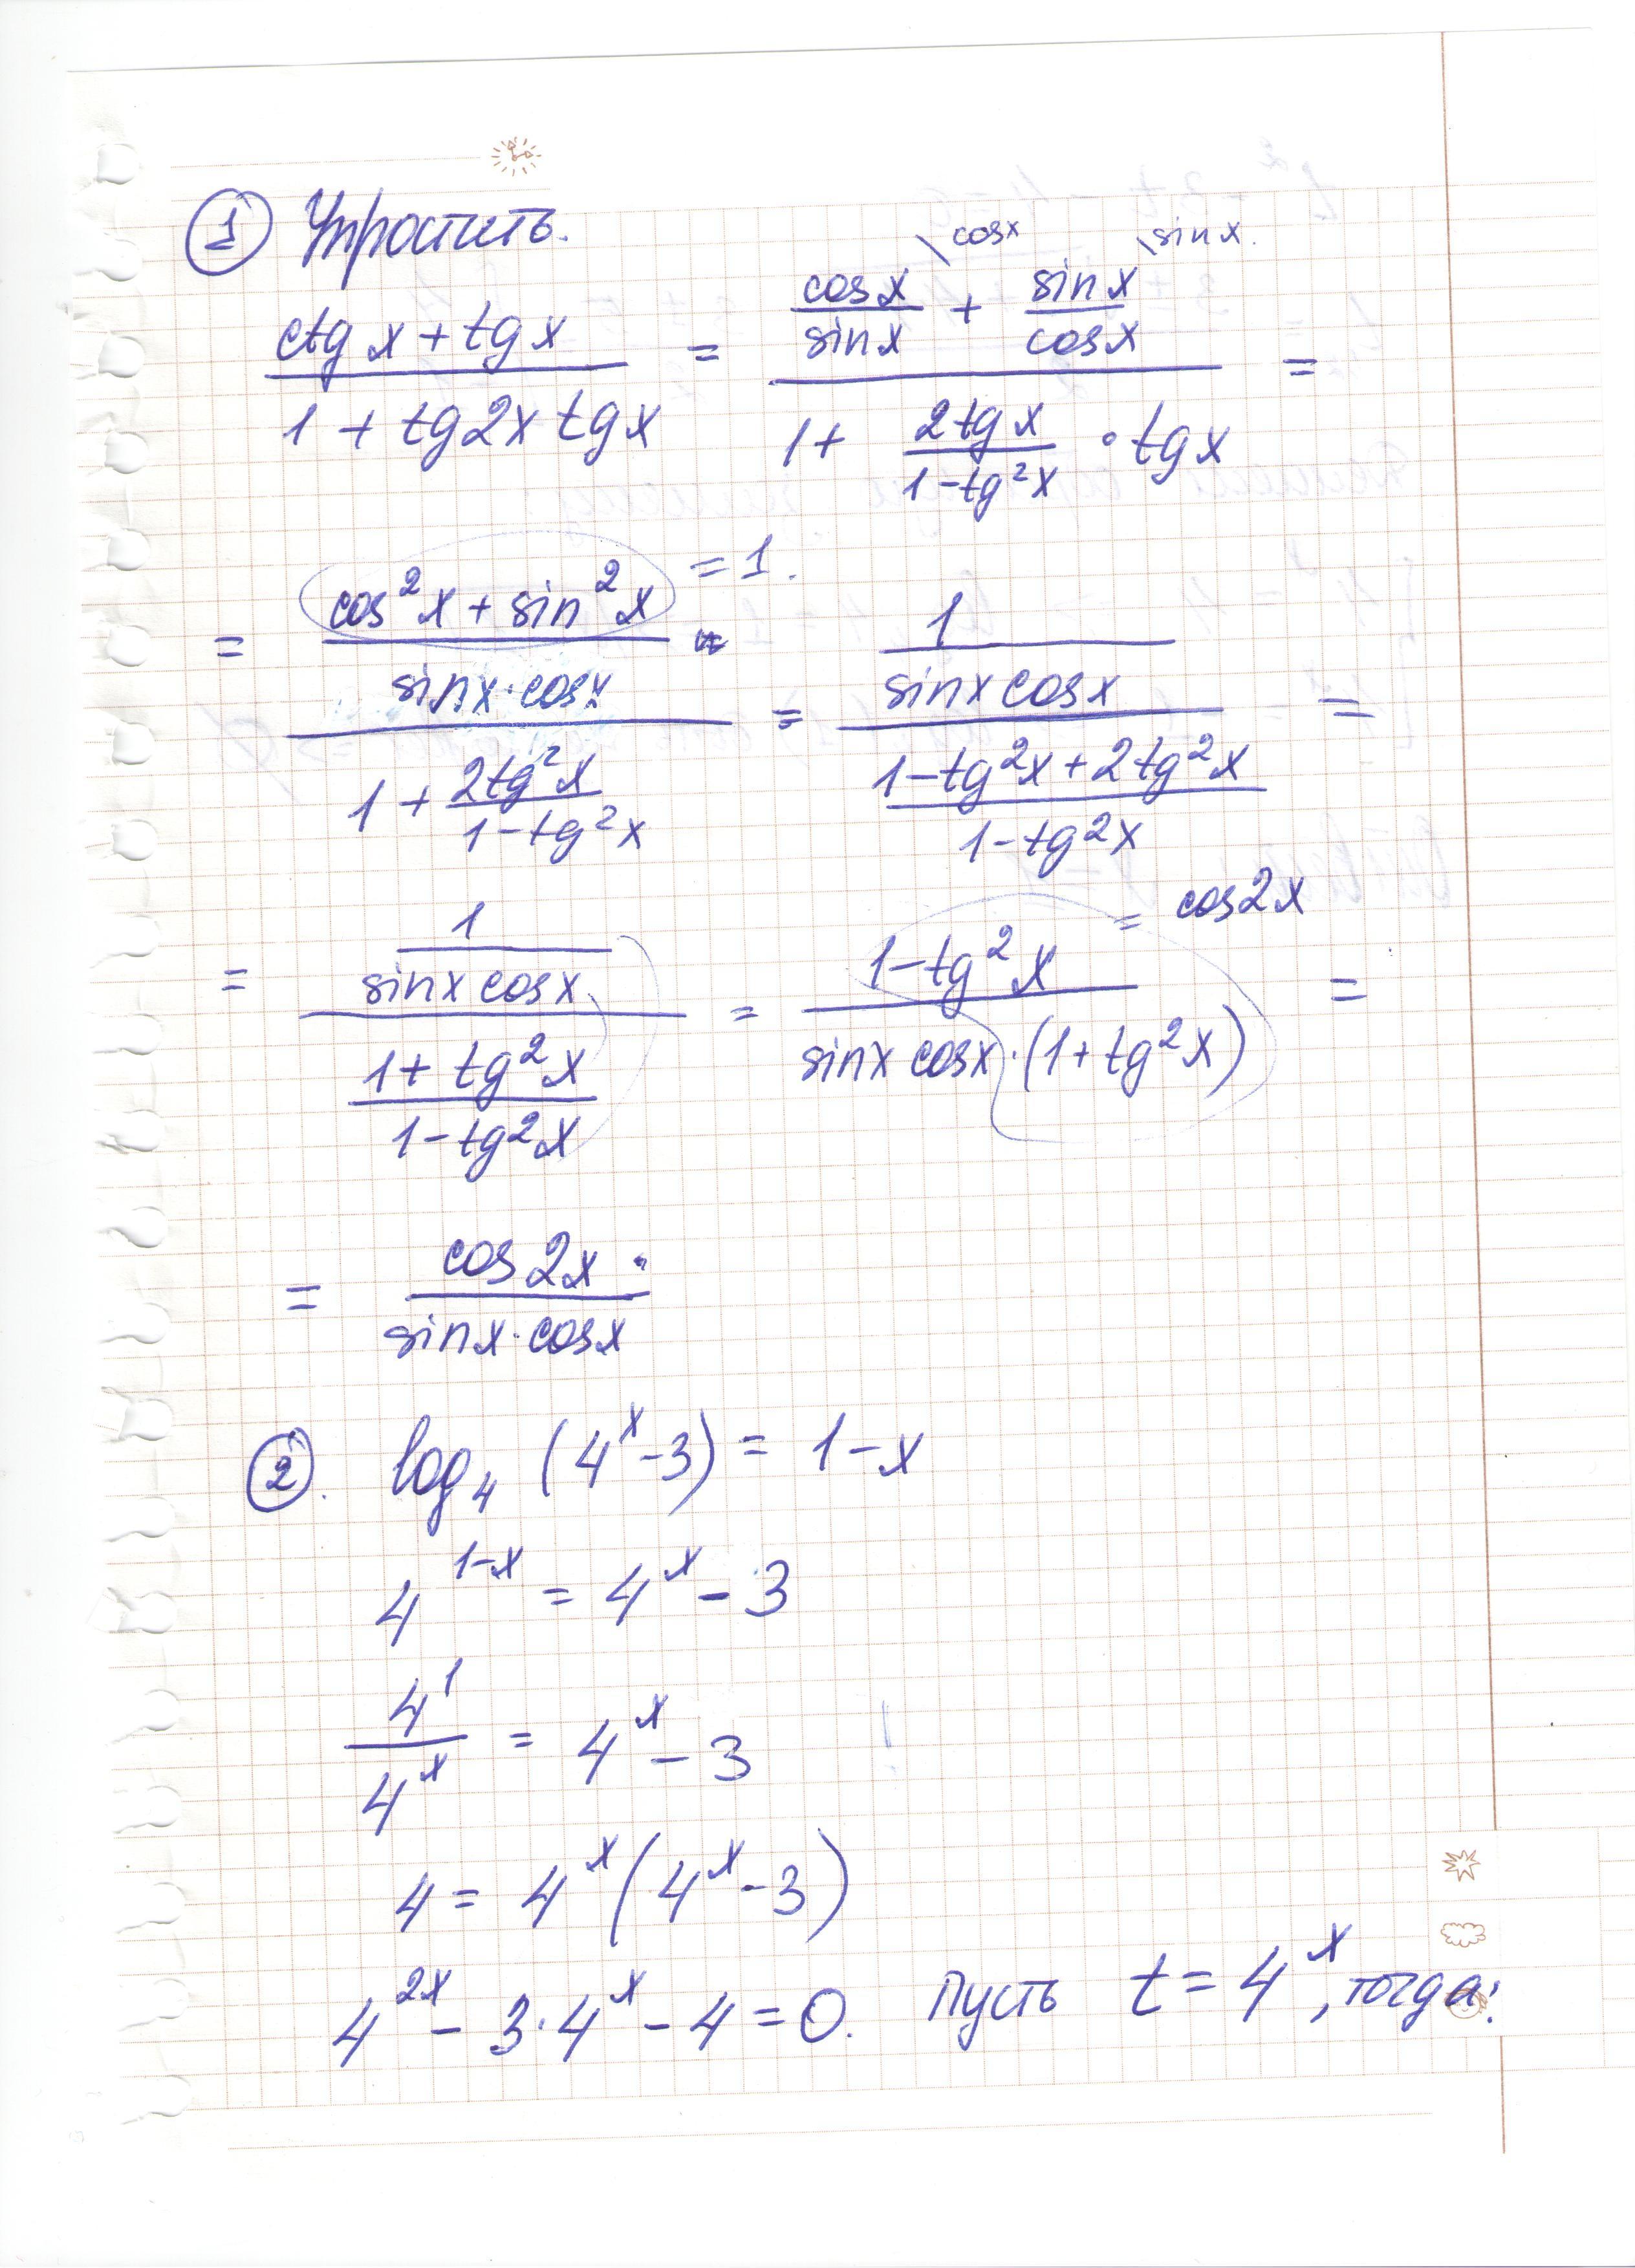 ① Упростить.
(ctg x + tg x)/(1 + tg2x tgx) = (cosx/sinx \cosx + sinx/cosx \sinx.)/(1 + 2tgx/(1-tg²x) · tgx) =
= ((cos²x + sin²x)/(sinx·cosx))/(1 + 2tg²x/(1-tg²x)) = 1. = (1/(sinx cosx))/((1-tg²x+2tg²x)/(1-tg²x)) =
= (1/(sinx cosx))/((1+tg²x)/(1-tg²x)) = (1-tg²x)/(sinx cosx·(1+tg²x)) = cos2x =
= cos2x/(sinx·cosx)
②. log₄ (4ˣ-3) = 1-x
4¹⁻ˣ = 4ˣ - 3
4¹/4ˣ = 4ˣ - 3
4 = 4ˣ(4ˣ-3)
4²ˣ - 3·4ˣ - 4 = 0. Пусть t = 4ˣ, тогда: